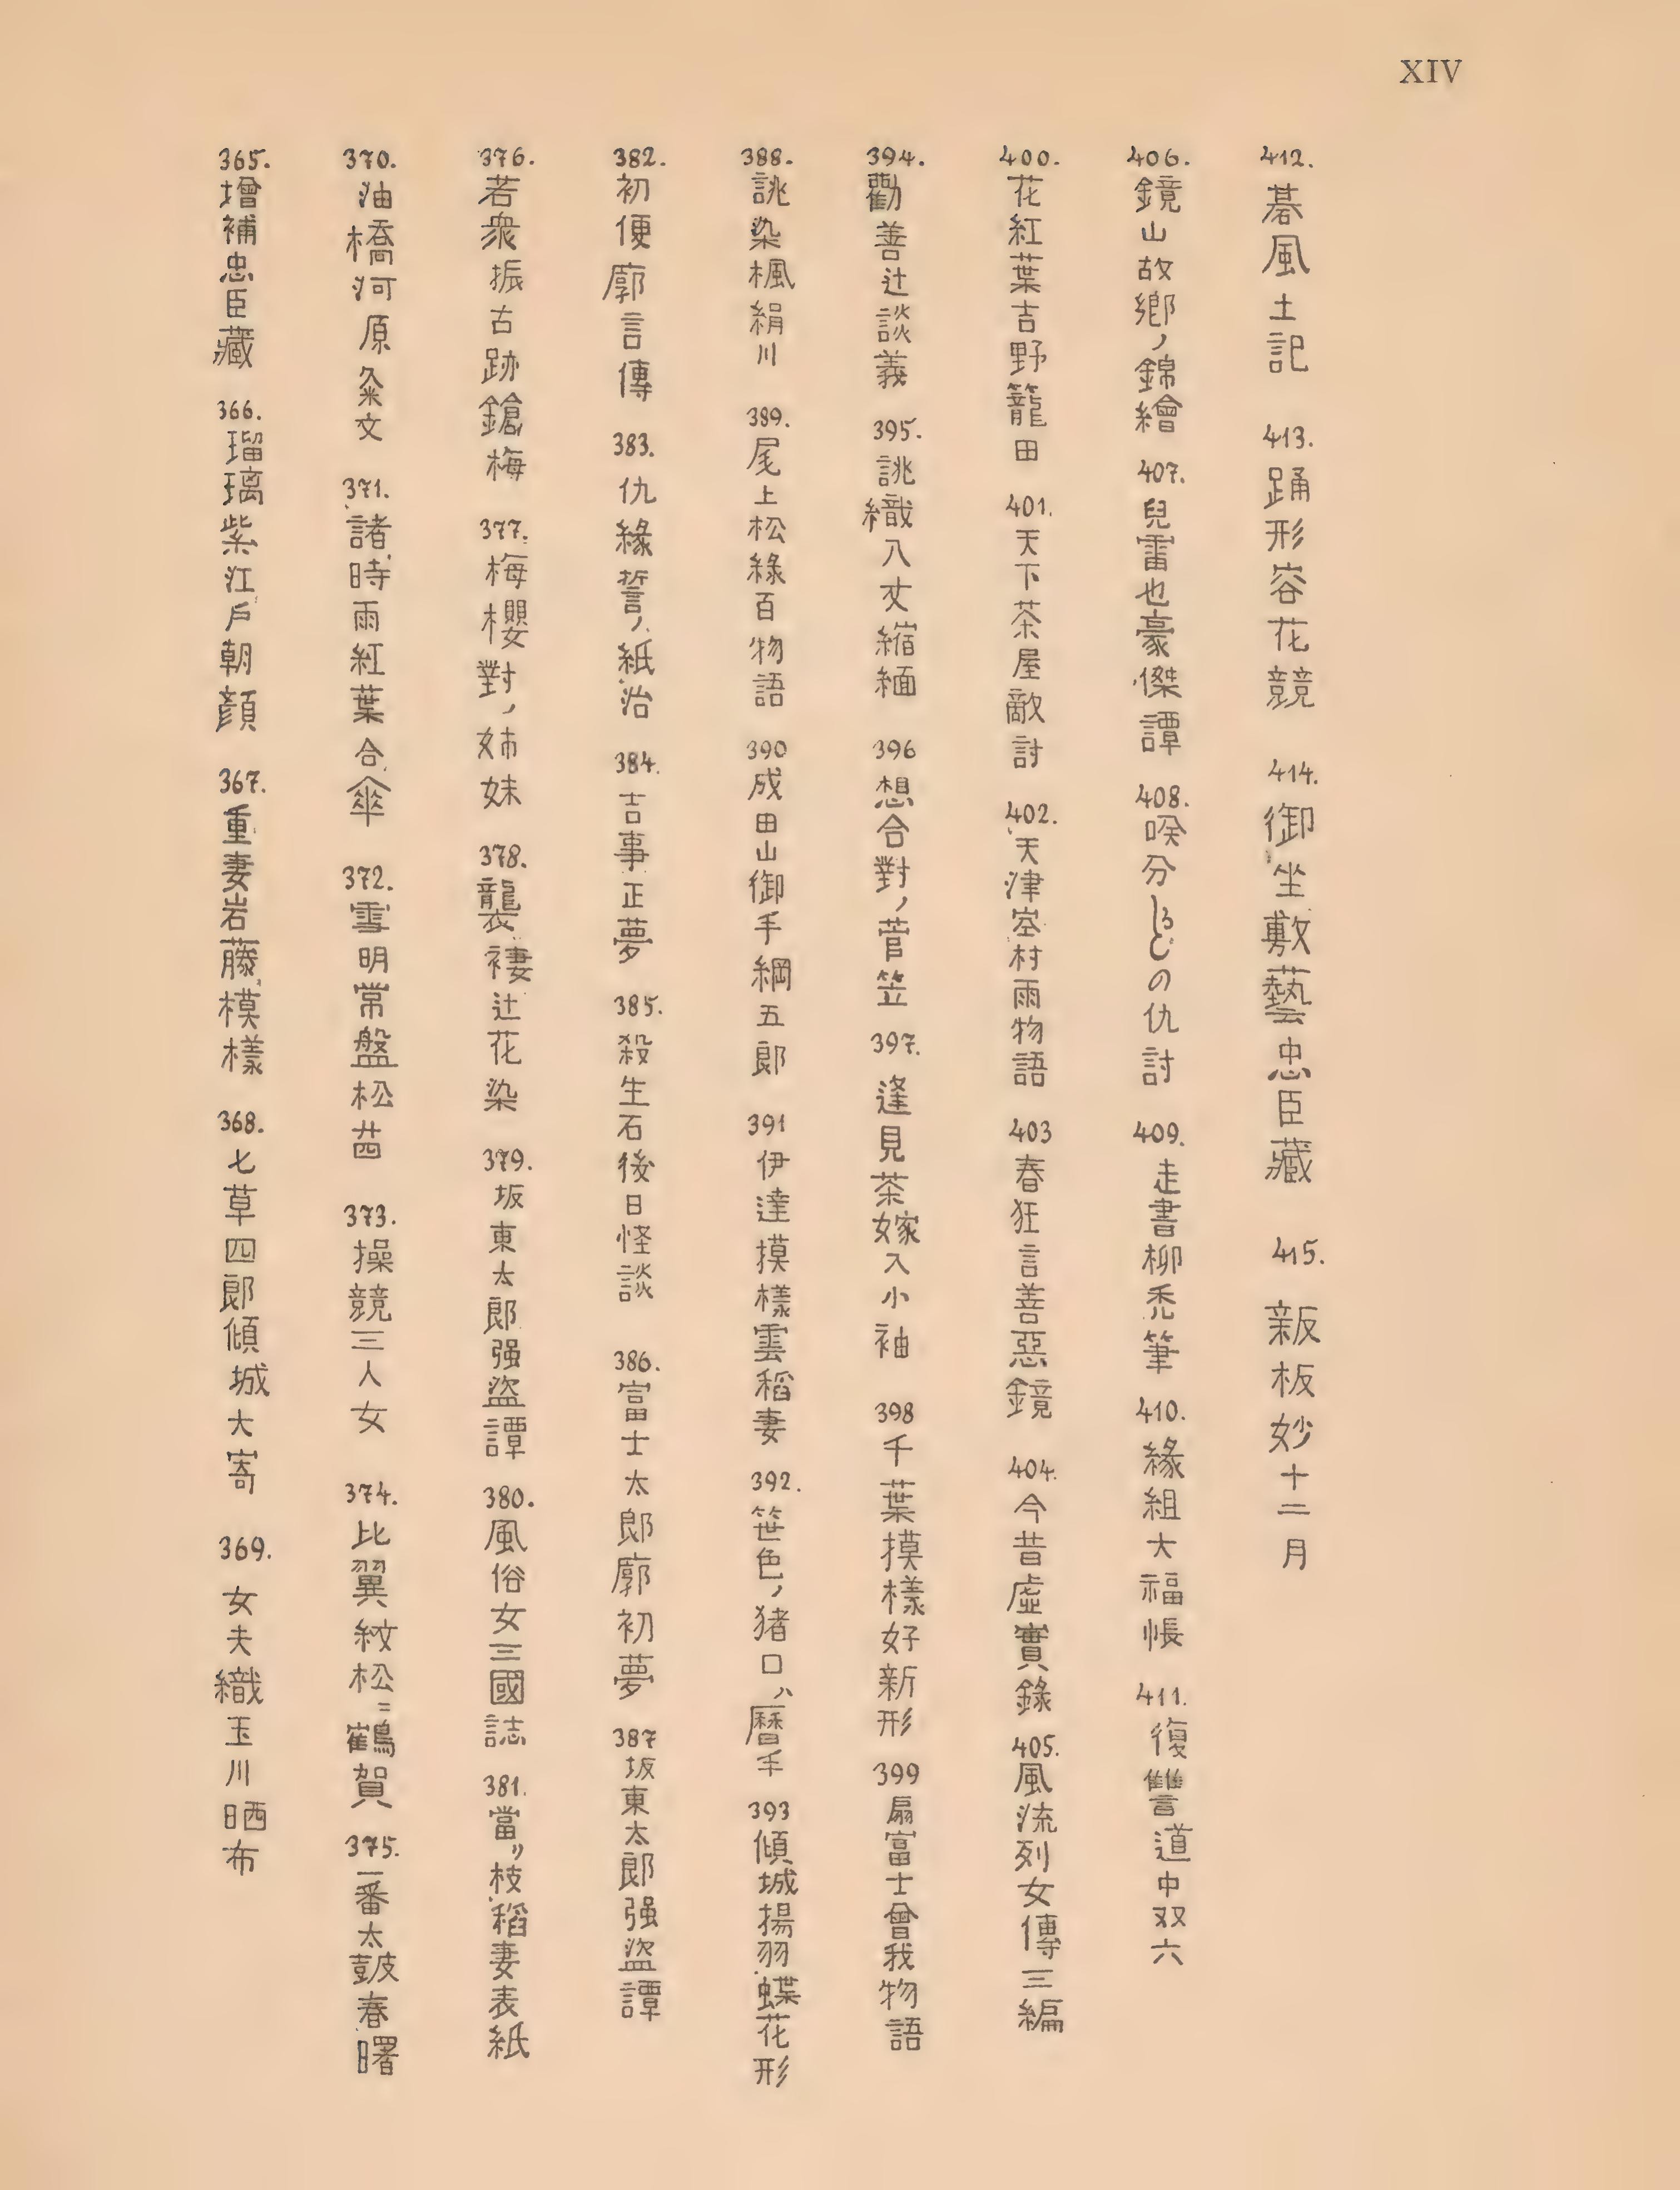 XIV
365. 增補忠臣藏 366. 瑠璃紫江戶朝顏 367. 重妻岩藤模樣 368. 七草四郎傾城大寄 369. 女夫織玉川晒布
370. 油橋河原粂文 371. 諸時雨紅葉合傘 372. 雪明常盤松茴 373. 操競三人女 374. 比翼紋松ニ鶴賀 375. 一番太皷春曙
376. 若衆振古跡鎗梅 377. 梅櫻對ノ姉妹 378. 襲褄辻花染 379. 坂東太郎强盜譚 380. 風俗女三國誌 381. 當リ枝稻妻表紙
382. 初便廓言傳 383. 仇緣誓ノ紙治 384. 吉事正夢 385. 殺生石後日怪談 386. 富士太郎廓初夢 387 坂東太郎强盜譚
388. 誂染楓絹川 389. 尾上松綠百物語 390 成田山御手綱五郎 391 伊達摸樣雲稻妻 392. 笹色ノ猪口ハ曆手 393 傾城揚羽蝶花形
394. 勸善辻談義 395. 誂織八丈縮緬 396 想合對ノ菅笠 397. 逢見茶嫁入小袖 398 千葉摸樣好新形 399 扇富士曾我物語
400. 花紅葉吉野籠田 401. 天下茶屋敵討 402. 天津空村雨物語 403 春狂言善惡鏡 404. 今昔虛實錄 405. 風流列女傳三編
406. 鏡山故鄉ノ錦繪 407. 兒雷也豪傑譚 408. 喉分しるしの仇討 409. 走書柳禿筆 410. 緣組大福帳 411. 復讐道中双六
412. 碁風土記 413. 踊形容花競 414. 御坐敷藝忠臣藏 415. 新板妙十二月